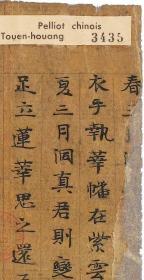 Pelliot chinois
Touen-houang 3435
春三月
衣手執華幡在紫雲
夏三月洞真君則變
足立蓮華思之還